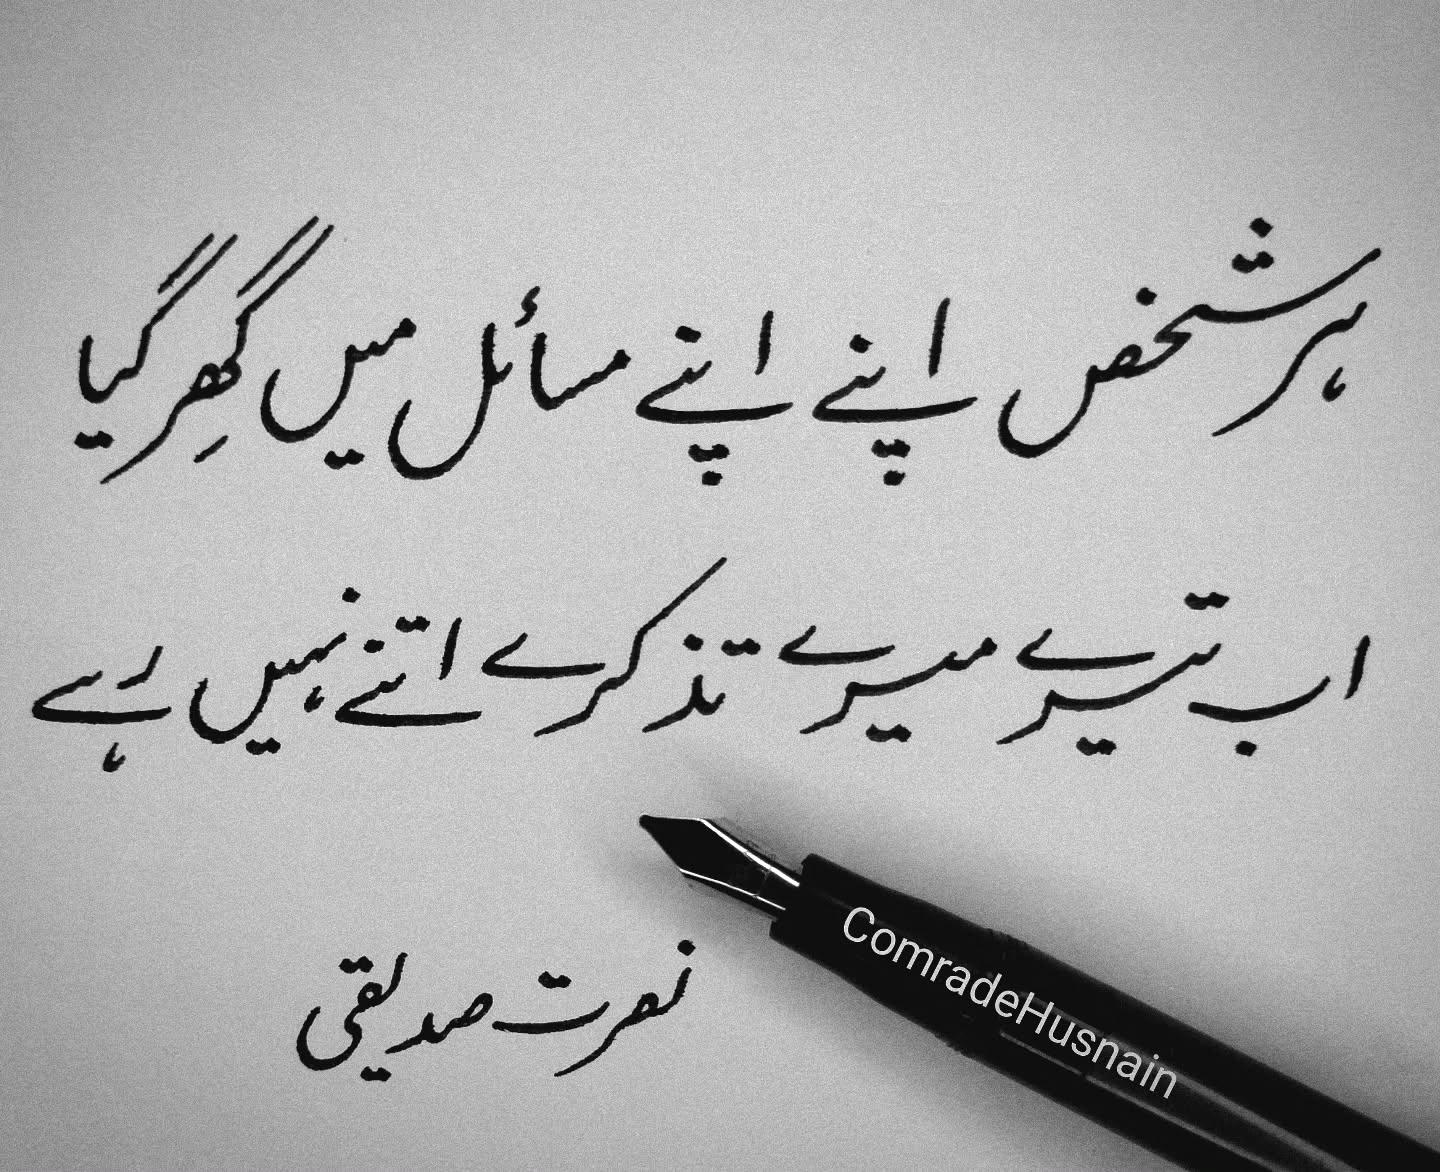 ہر شخص اپنے اپنے مسائل میں گھِر گیا
اب تیرے میرے تذکرے اتنے نہیں رہے
نصرت صدیقی
ComradeHusnain